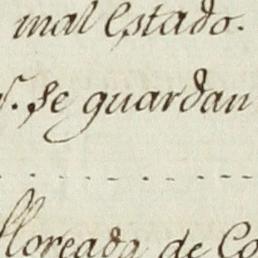 mal Estado.
se guardan
floreada de Co